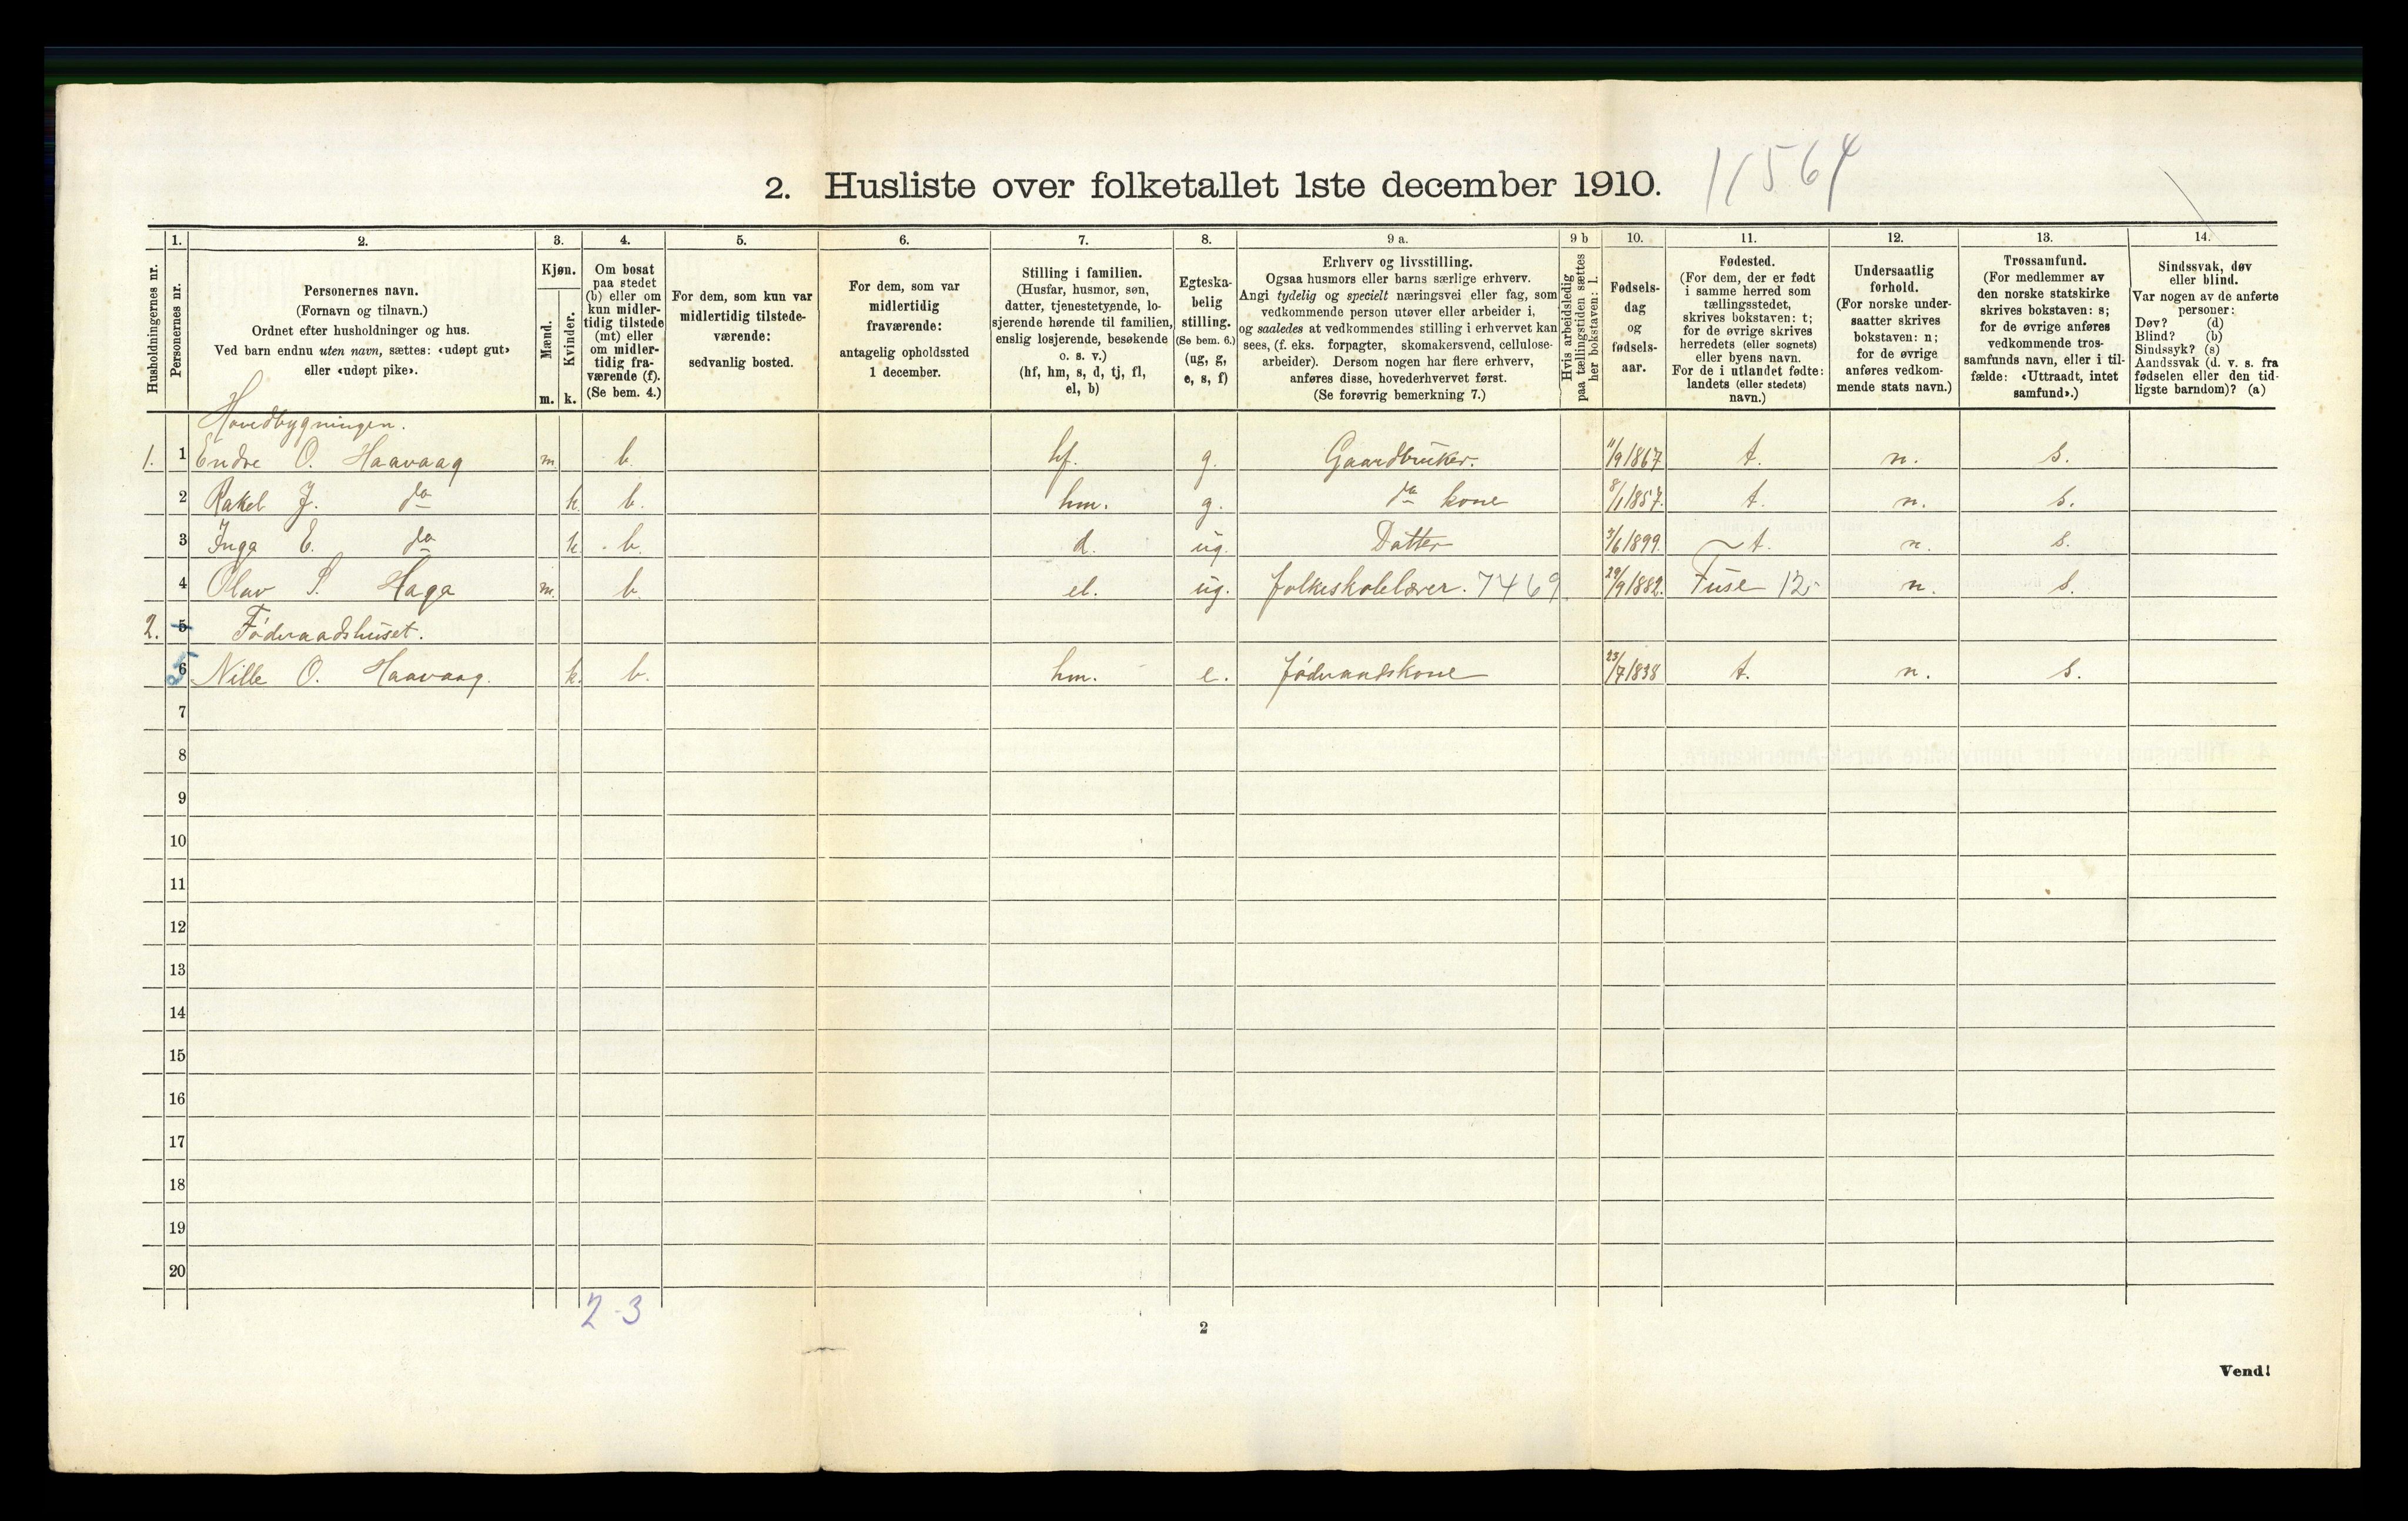 2. Husliste over folketallet 1ste december 1910. 11564
Husholdningernes nr.
1.
Personernes nr.
2.
Personernes navn.
(Fornavn og tilnavn.)
Ordnet efter husholdninger og hus.
Ved barn endnu uten navn, sættes: «udøpt gut»
eller «udøpt pike».
3.
Kjøn.
Mænd.
Kvinder.
m. k.
4.
Om bosat
paa stedet
(b) eller om
kun midler-
tidig tilstede
(mt) eller
om midler-
tidig fra-
værende (f).
(Se bem. 4.)
5.
For dem, som kun var
midlertidig tilstede-
værende:
sedvanlig bosted.
6.
For dem, som var
midlertidig
fraværende:
antagelig opholdssted
1 december.
7.
Stilling i familien.
(Husfar, husmor, søn,
datter, tjenestetyende, lo-
sjerende hørende til familien,
enslig losjerende, besøkende
o. s. v.)
(hf, hm, s, d, tj, fl,
el, b)
8.
Egteska-
belig
stilling.
(Se bem. 6.)
(ug, g,
e, s, f)
9 a.
Erhverv og livsstilling.
Ogsaa husmors eller barns særlige erhverv.
Angi tydelig og specielt næringsvei eller fag, som
vedkommende person utøver eller arbeider i,
og saaledes at vedkommendes stilling i erhvervet kan
sees, (f. eks. forpagter, skomakersvend, cellulose-
arbeider). Dersom nogen har flere erhverv,
anføres disse, hovederhvervet først.
(Se forøvrig bemerkning 7.)
9 b
Hvis arbeidsledig
paa tællingstiden sættes
her bokstaven: l.
10.
Fødsels-
dag
og
fødsels-
aar.
11.
Fødested.
(For dem, der er født
i samme herred som
tællingsstedet,
skrives bokstaven: t;
for de øvrige skrives
herredets (eller sognets)
eller byens navn.
For de i utlandet fødte:
landets (eller stedets)
navn.)
12.
Undersaatlig
forhold.
(For norske under-
saatter skrives
bokstaven: n;
for de øvrige
anføres vedkom-
mende stats navn.)
13.
Trossamfund.
(For medlemmer av
den norske statskirke
skrives bokstaven: s;
for de øvrige anføres
vedkommende tros-
samfunds navn, eller i til-
fælde: «Uttraadt, intet
samfund».)
14.
Sindssvak, døv
eller blind.
Var nogen av de anførte
personer:
Døv? (d)
Blind? (b)
Sindssyk? (s)
Aandssvak (d. v. s. fra
fødselen eller den tid-
ligste barndom)? (a)
Hovedbygningen.
1. 1 Endre O. Haavaag m. b. hf. g. Gaardbruker. 11/9 1867 t. n. s.
2 Rakel J. do k. b. hm. g. do kone 8/1 1857. t. n. s.
3 Inga E. do k. b. d. ug. Datter 3/6 1899. t. n. s.
4 Olav S. Haga m. b. el. ug. folkeskolelærer. 7469 29/9 1882. Fuse 12 n. s.
2. 5 Føderaadshuset.
6 5 Nille O. Haavaag. k. b. hm. e. føderaadskone 23/7 1838 t. n. s.
7
8
9
10
11
12
13
14
15
16
17
18
19
20
2-3
2
Vend!